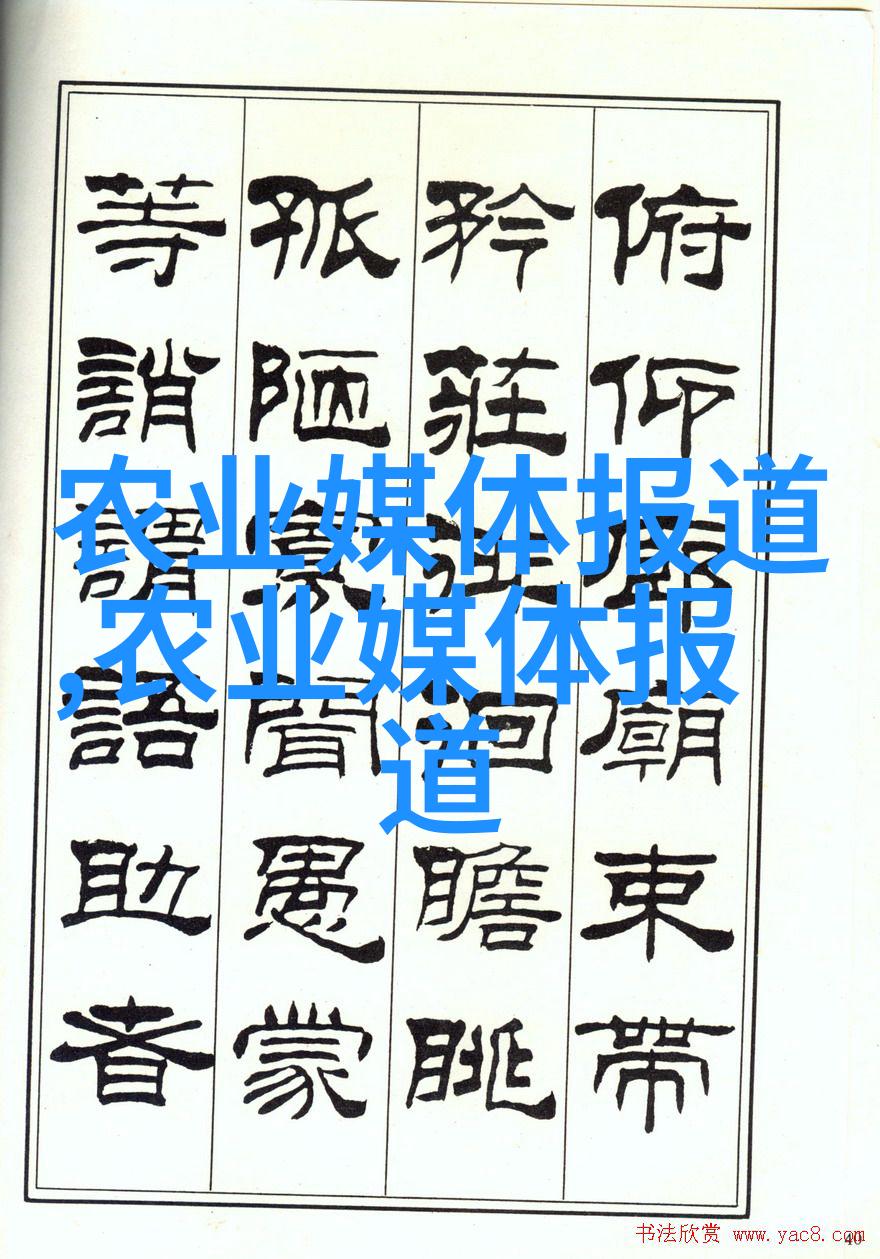 俯仰廊廟束帶
矜莊徘徊瞻眺
孤陋寡聞愚蒙
等誚謂語助者
农业媒体报道
,农业媒体报
道
书法欣赏 www.yac8.com
40